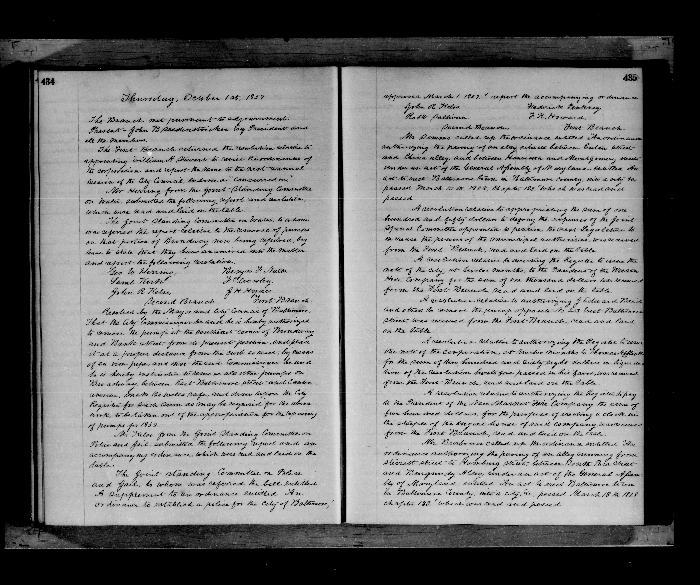 434
Thursday, October 1st, 1857
The Branch met pursuant to adjournment.
Present - John B Seidenstricker Esq President and
all the members.
The First Branch returned the resolution relative to
appointing William H Stewart to revise the ordinances of
the corporation and report the same to the next annual
session of the City Council endorsed "concurred in"
Mr Herring from the Joint Standing Committee
on Water submitted the following report and resolution,
which was read and laid on the table.
The Joint Standing Committee on Water, to whom
was referred the report relative to the removal of pumps
on that portion of Broadway now being repaved, beg
leave to state that they have examined into the matter
and report the following resolution.
Geo W Herring, Benjn F
Saml
John R Kelso, J H
Second Branch First Branch
Resolved by the Mayor and City Council of Baltimore,
That the City Commissioner be and he is hereby authorized
to remove the pump at the northeast corner of Broadway
and Bank street from its present position and place
it at a proper distance from the curb
of an iron pipe, and that the City Commissioner be and
he is hereby instructed to remove all other pumps on
Broadway between East Baltimore street and Canton
avenue, make the wells safe and draw upon the City
Register for such sum as may be required for the above
work to be taken out of the appropriation for the repairing
of pumps for 1857
Mr Kelso from the Joint Standing Committee on
Police and Jail submitted the following report and an
accompanying ordinance which was read and laid on the
table.
The Joint Standing Committee on Police
and Jail, to whom was referred the bill entitled
A supplement to an ordinance entitled An
ordinance to establish a police for the City of Baltimore,
435
approved March 1 1857, report the accompanying ordinance
John R Kelso
Robt Sullivan F. K. Howard
Second Branch First Branch
Mr called up the ordinance entitled An ordinance
authorizing the paving of an alley situate between Eutaw street
and alley and between Hamburg and Montgomery streets
under an act of the General Assembly of Maryland entitled An
act to erect Baltimore Town in Baltimore County into a city &c
passed March 18th 1838, Chapter 183 which was read and
passed
A resolution relative to appropriating the sum of one
hundred and fifty dollars to defray the expenses of the Joint
Special Committee appointed to petition the next Legislature to
increase the powers of the municipal authorities, was received
from the First Branch, read and laid on the table.
A resolution relative to directing the Register to issue the
note of the city at twelve months to the President of the
Hose Company for the sum of one thousand dollars was received
from the First Branch, read and laid on the table.
A resolution relative to authorizing
and others to remove the pump opposite No East Baltimore
street was received from the First Branch, read and laid
on the table.
A resolution relative to authorizing the Register to issue
the note of the corporation, at twelve months to
for the sum of two hundred and thirty eight dollars in liquidation
of the resolution heretofore passed in his favor, was received
from the First Branch, and laid on the table.
A resolution relative to authorizing the Register to pay
to the President of the Hose Company the sum of
five hundred dollars, for the purpose of erecting a clock in
the steeple of the engine house of said company was received
from the First Branch, read and laid on the table.
Mr called up the ordinance entitled An
ordinance authorizing the paving of an alley running from
street to Hamburg street between South Paca street
and Burgundy Alley, under an act of the General Assembly
of Maryland entitled An act to erect Baltimore town
in Baltimore County into a city, &c passed March 18th 1838
chapter 183 which was read and passed